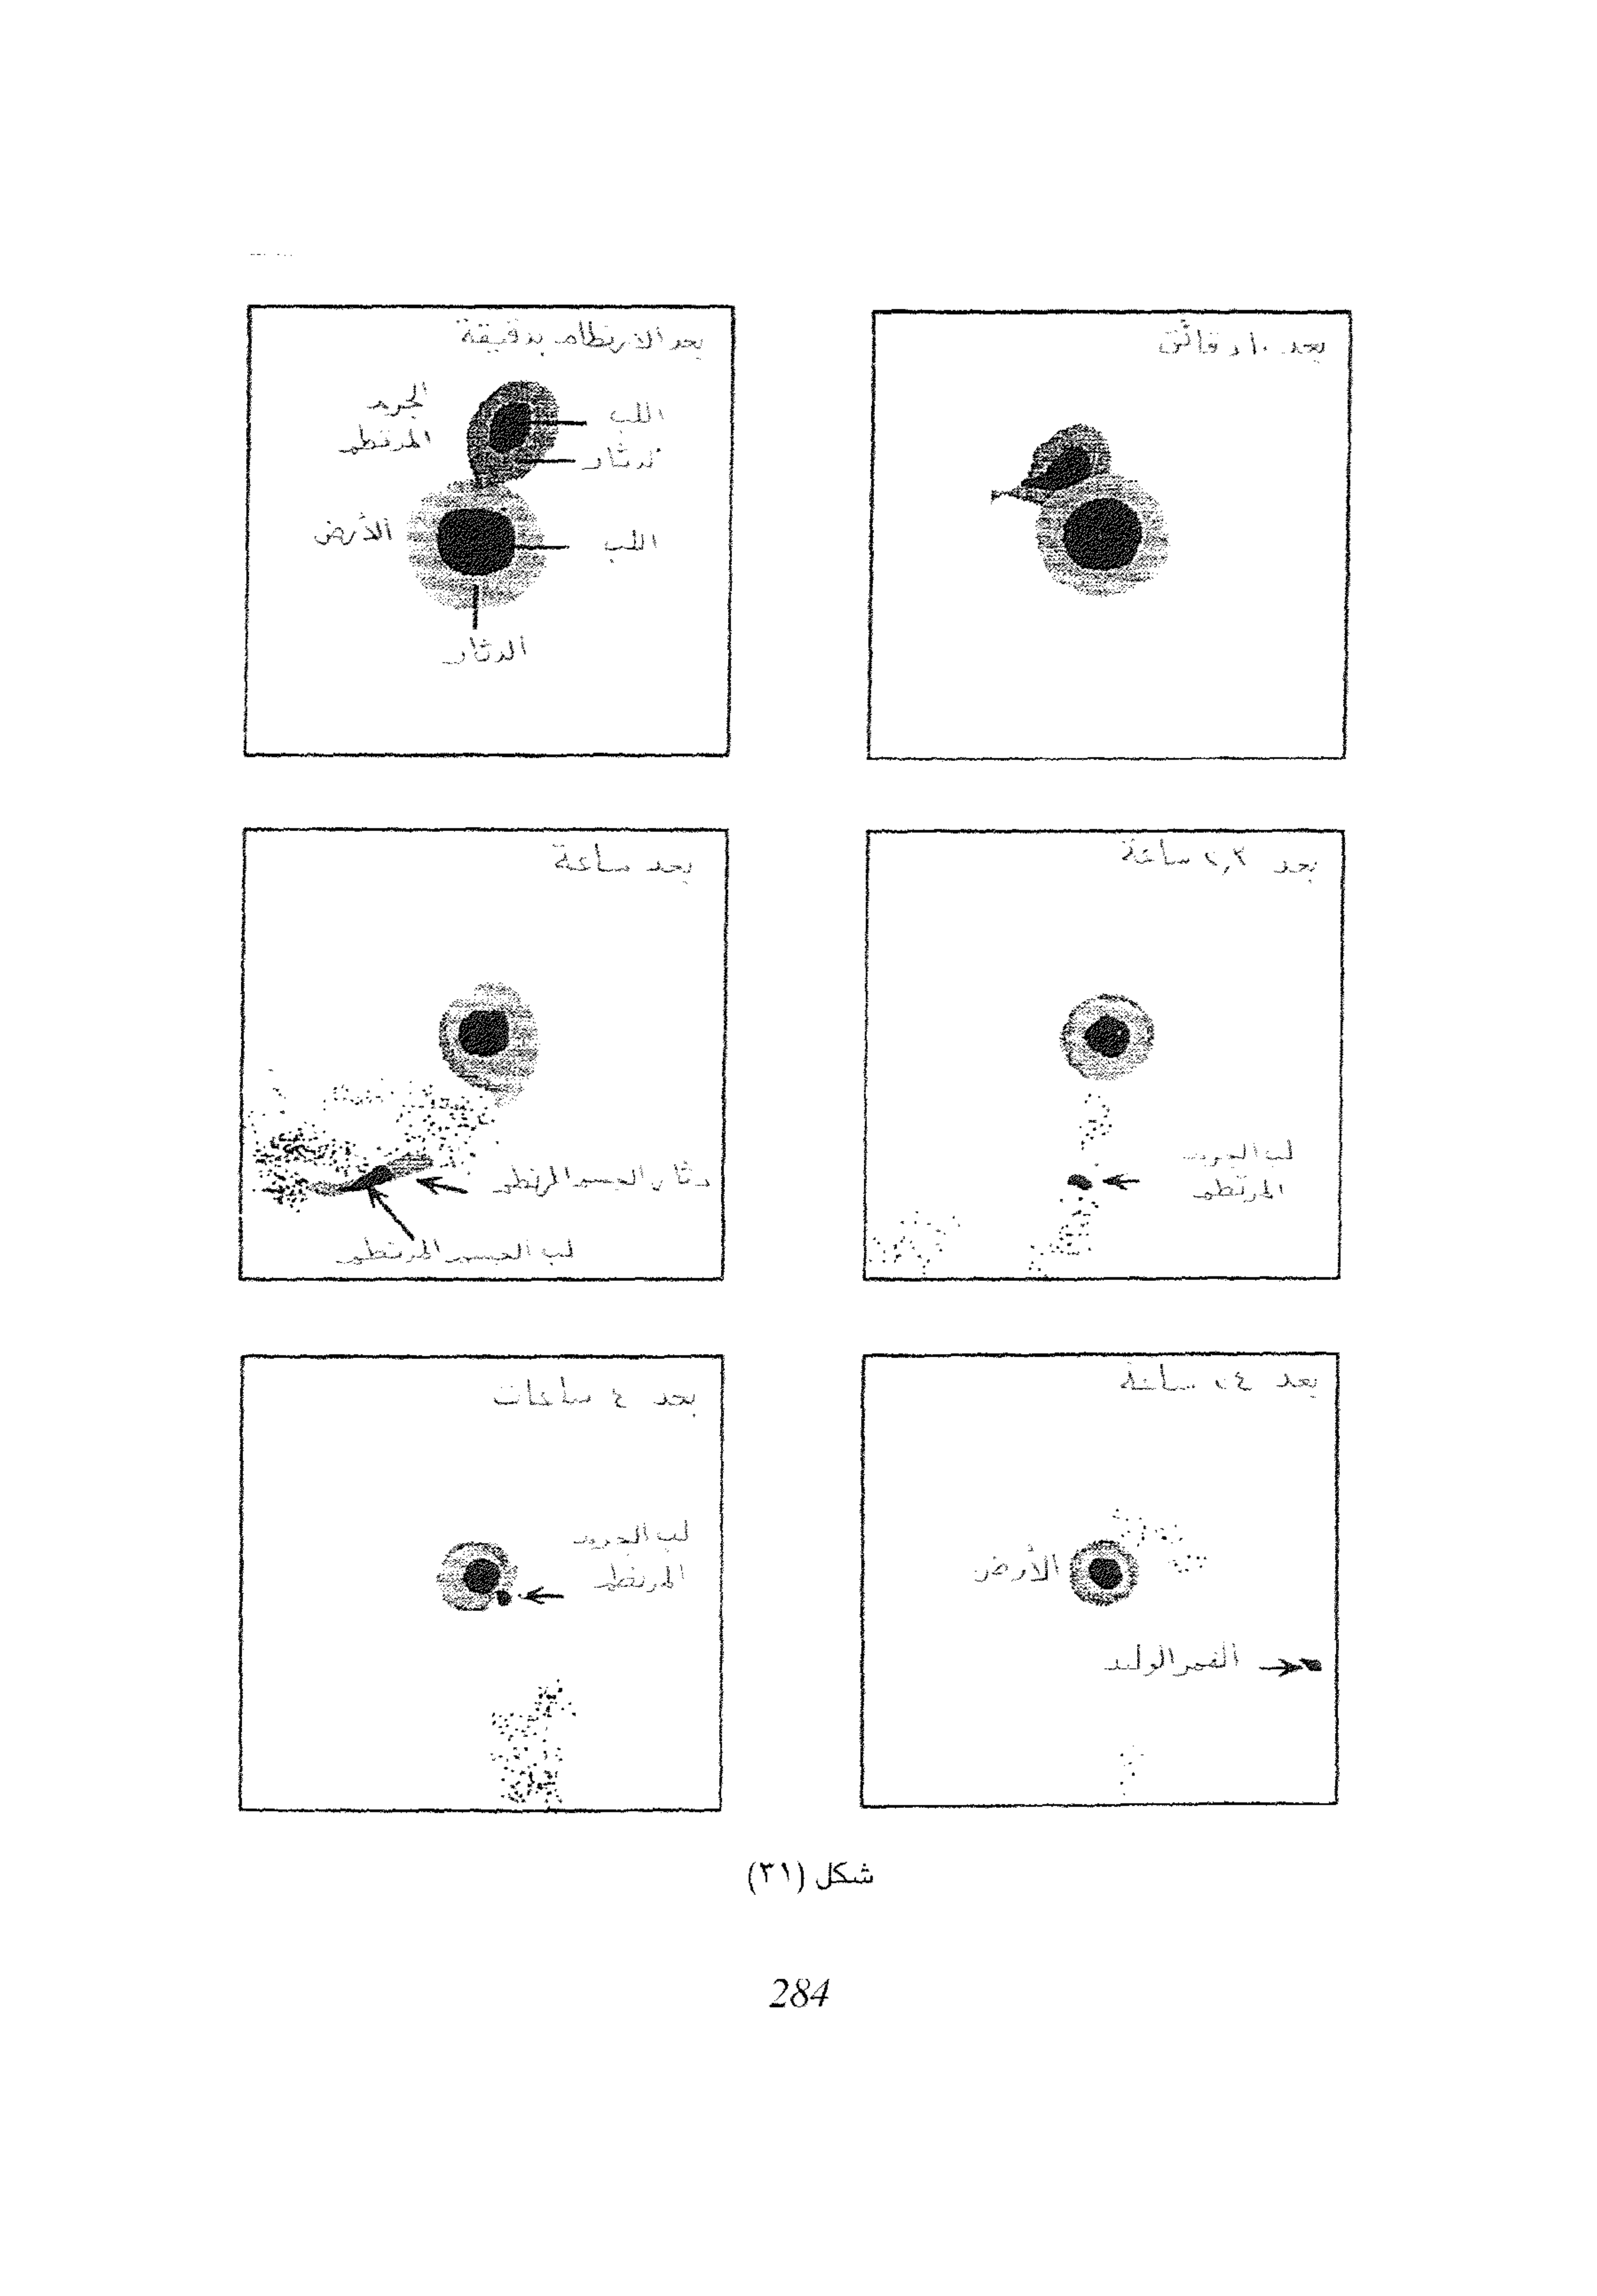 بعد الارتطام بدقيقة
الجرم
المرتطم
اللب
الدثار
الأرض
اللب
الدثار
بعد ١٠ دقائق
بعد ساعة
دثار الجسم المرتطم
لب الجسم المرتطم
بعد ٢,٢ ساعة
لب الجرم
المرتطم
بعد ٤ ساعات
لب الجرم
المرتطم
بعد ساعة
الأرض
القمر الوليد
شكل (٣١)
284